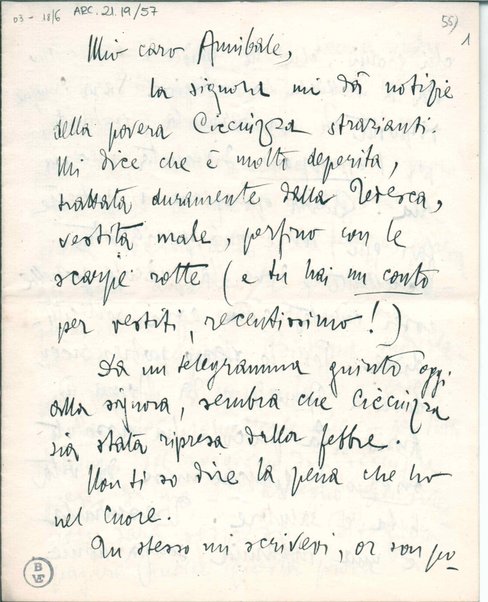 03 - 18/6 ARC. 21.19/57
55)
1
Mio caro Annibale,
la signora mi dà notizie
della povera Cicciuzza strazianti.
Mi dice che è molto deperita,
trattata duramente dalla Tedesca,
vestita male, perfino con le
scarpe rotte (e tu hai un conto
per vestiti, recentissimo!)
Da un telegramma giunto oggi
alla signora, sembra che Cicciuzza
sia stata ripresa dalla febbre.
Non ti so dire la pena che ho
nel cuore.
Tu stesso mi scrivevi, or son po